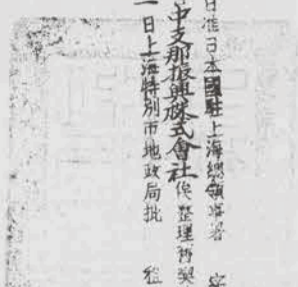 日准日本國駐上海總領事署
中支那振興株式會社俟整理再契
一日上海特別市地政局批